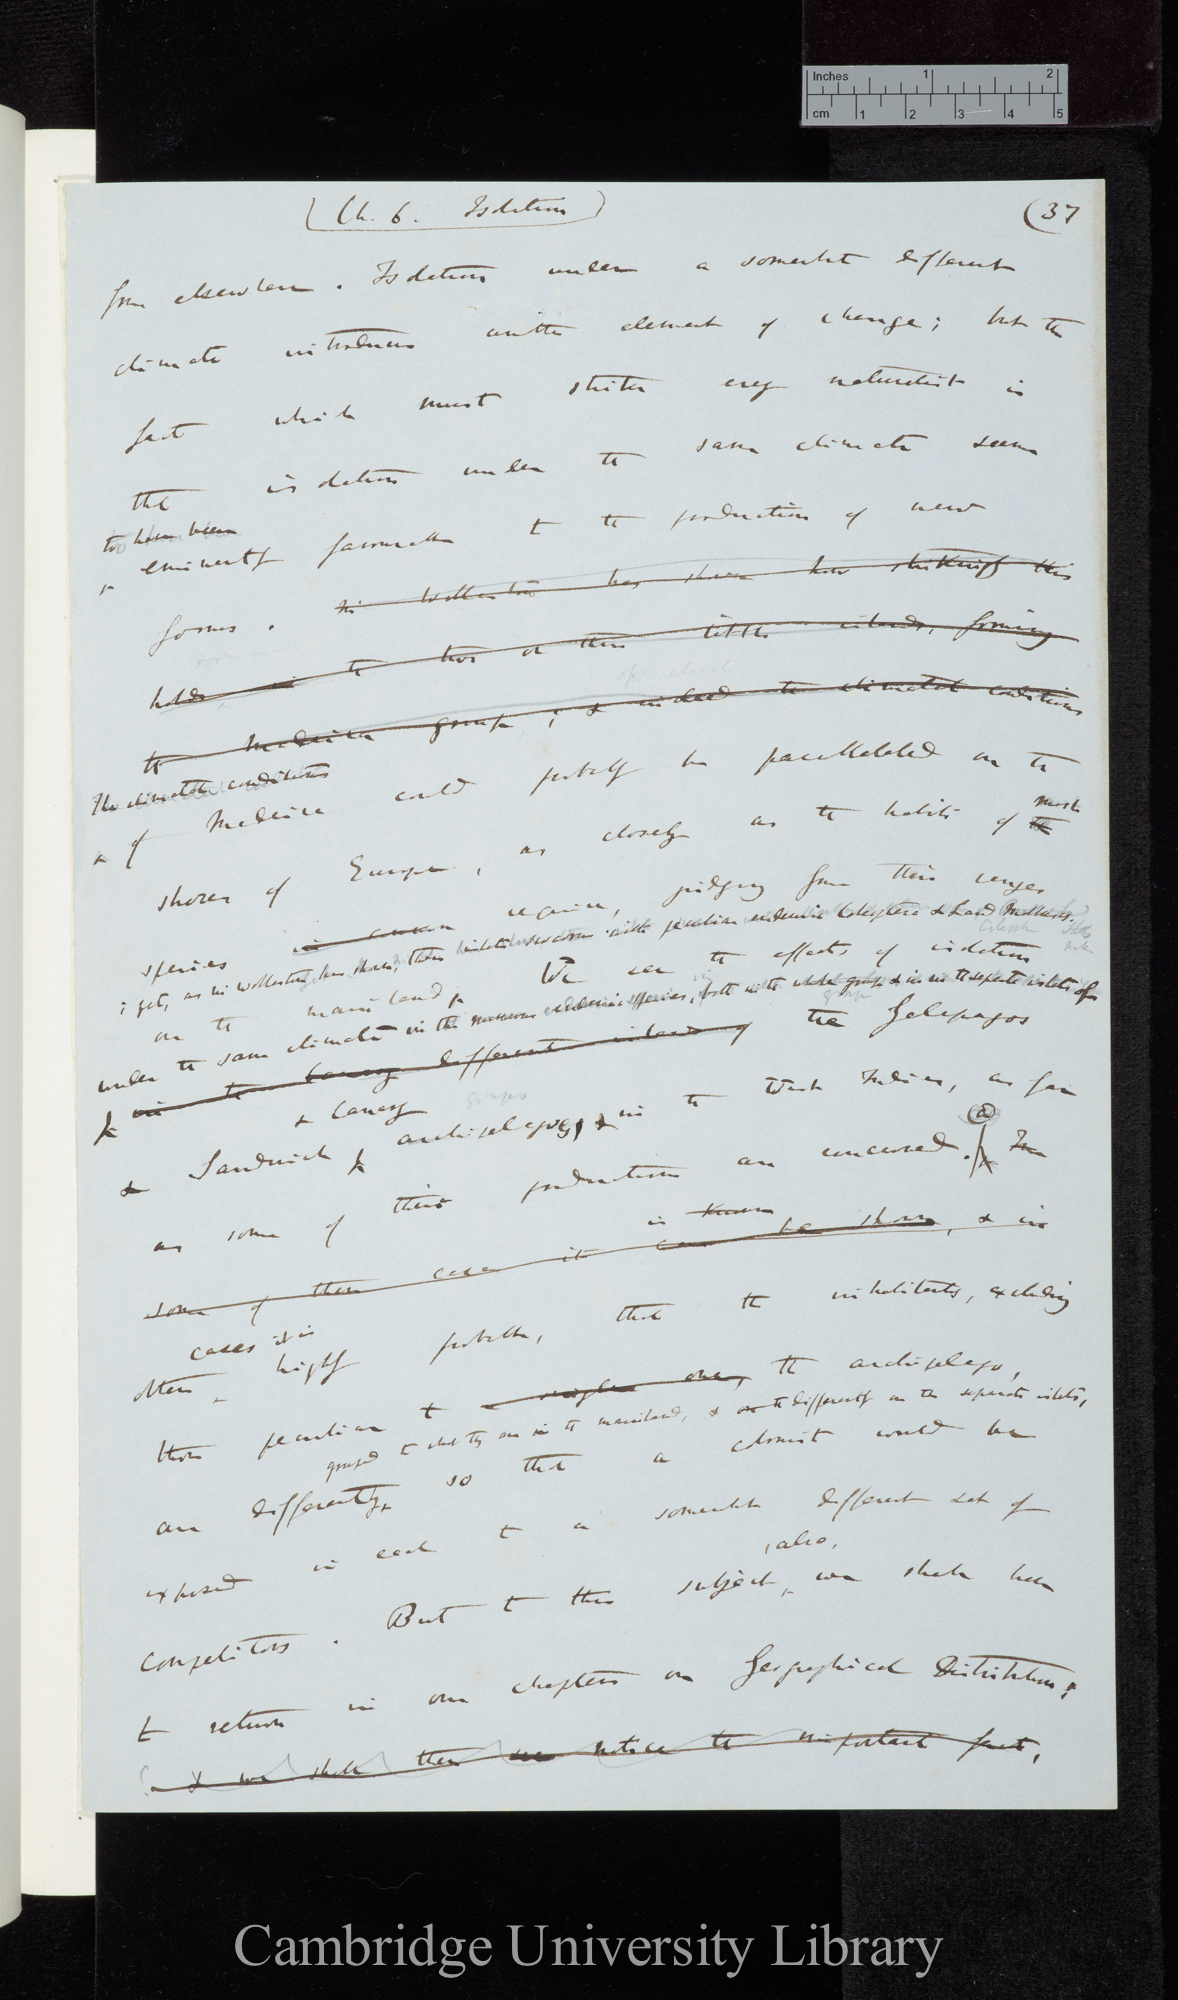 Inches 1 2
cm 1 2 3 4 5
Ch. 6. Isolation
(37
from elsewhere. Isolation under a somewhat different
climate introduces another element of change; but the
fact which must strike every naturalist is
that isolation under the same climate seems
to have been
eminently favourable to the production of new
forms. Mr Wollaston has shown how strikingly this
holds in the two or three little islands, forming
the Madeira group; & indeed the climatal conditions
The climatal conditions
of Madeira could probably be parallelaled on the
most
shores of Europe, as closely as the habits of the
species in common require, judging from their ranges
; yet, as Mr Wollaston has shown, these islets swarm with peculiar endemic Coleoptera & Land Molluscs.
on the mainland. We see the effects of isolation
under the same climate in the numerous endemic species, both in the whole group & in the separate islets of
in the Canary different islands of the Galapagos
& Canary
& Sandwich archipelagos, & in the West Indies, as far
(a)
as some of their productions are concerned. In
is known
some of these cases it can be shown, & in
cases it is
others highly probable, that the inhabitants, excluding
those peculiar to a single one, the archipelago,
grouped to what they are in the mainland, & differently on the separate islets,
are differently, so that a colonist would be
exposed in each to a somewhat different set of
, also,
competitors. But to this subject, we shall have
to return in our chapters on Geographical Distribution;
& we shall then notice the important fact,
Cambridge University Library